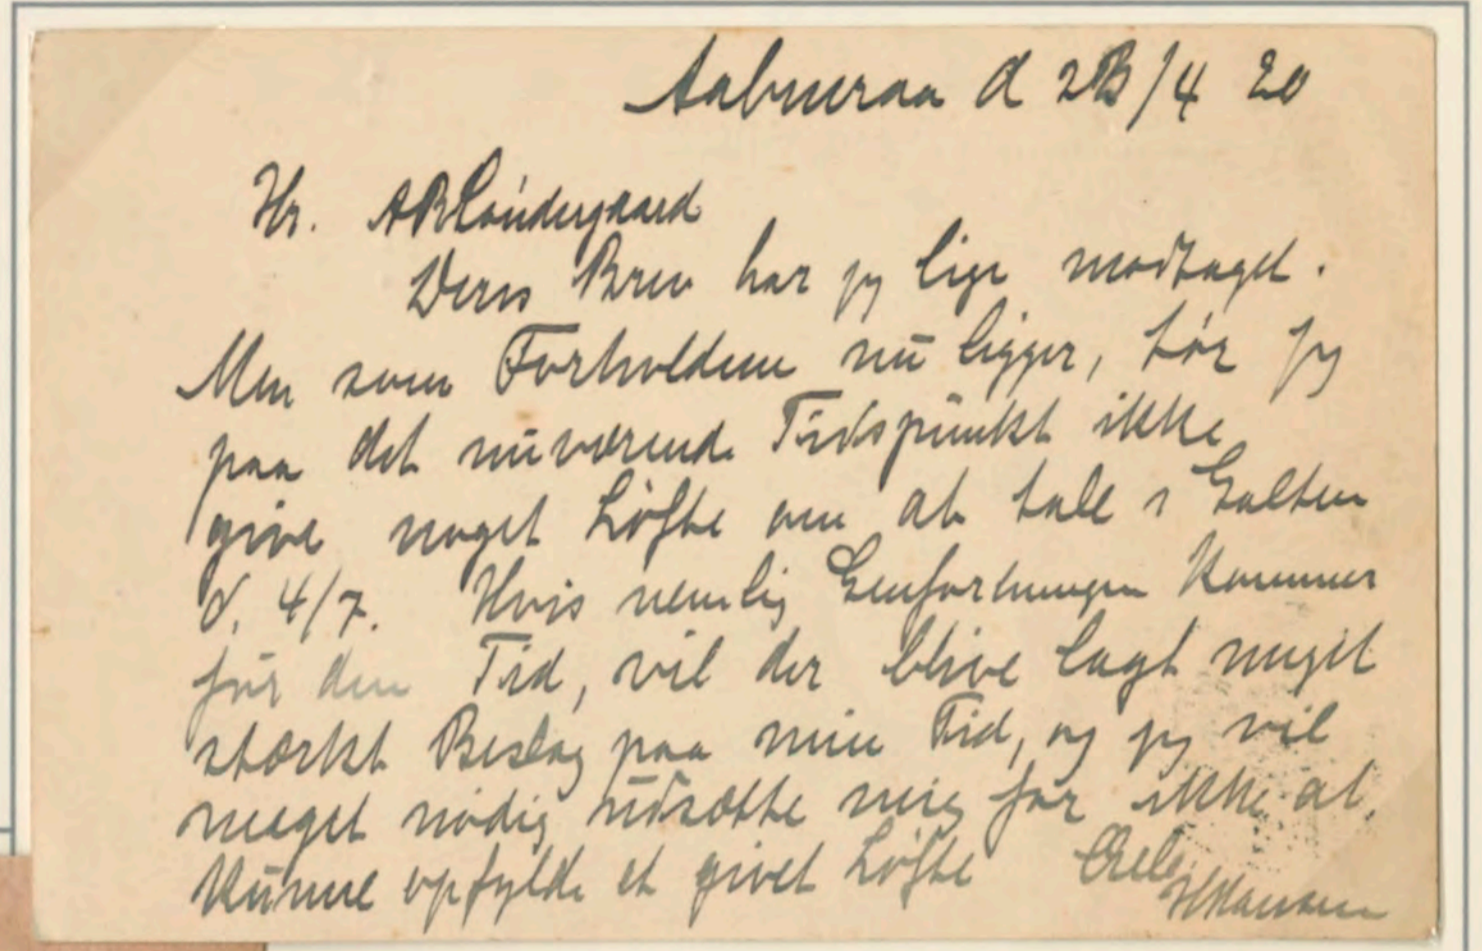 Aabenraa d 23/4 20
Hr. AP Søndergaard
Deres Brev har jeg lige modtaget.
Men som Forholdene nu ligger, tør jeg
paa det nuværende Tidspunkt ikke
give noget Løfte om at tale i Galten
d. 4/7. Hvis nemlig Genforeningen kommer
før den Tid, vil der blive lagt meget
stærkt Beslag paa min Tid, og jeg vil
meget nødig udsætte mig for ikke at
kunne opfylde et givet Løfte